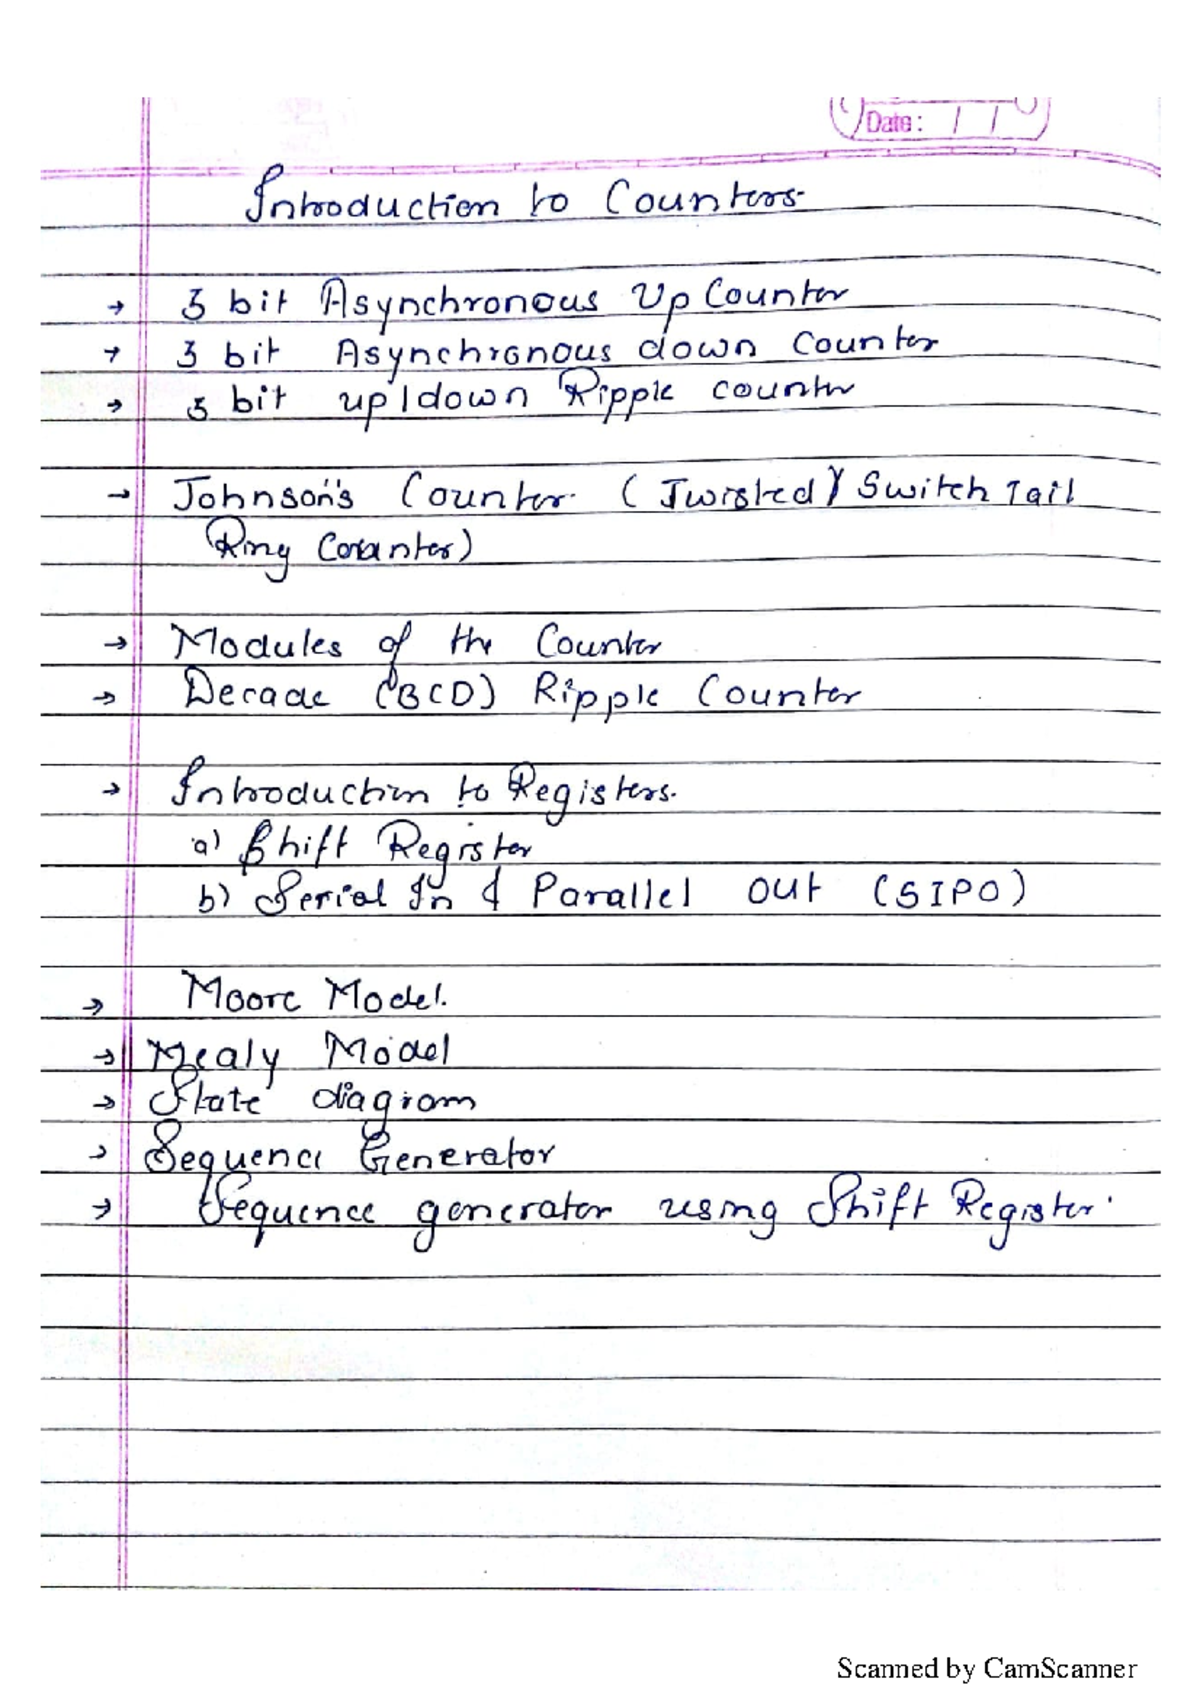 Date: / /
Introduction to Counters.
→ 3 bit Asynchronous Up Counter
→ 3 bit Asynchronous down Counter
→ 3 bit up/down Ripple counter
→ Johnson's Counter. (Twisted / Switch Tail
Ring Counter)
→ Modules of the Counter
→ Decade (BCD) Ripple Counter
→ Introduction to Registers.
a) Shift Register
b) Serial In & Parallel Out (SIPO)
→ Moore Model.
→ Mealy Model
→ State diagram
→ Sequence Generator
→ Sequence generator using Shift Register.
Scanned by CamScanner